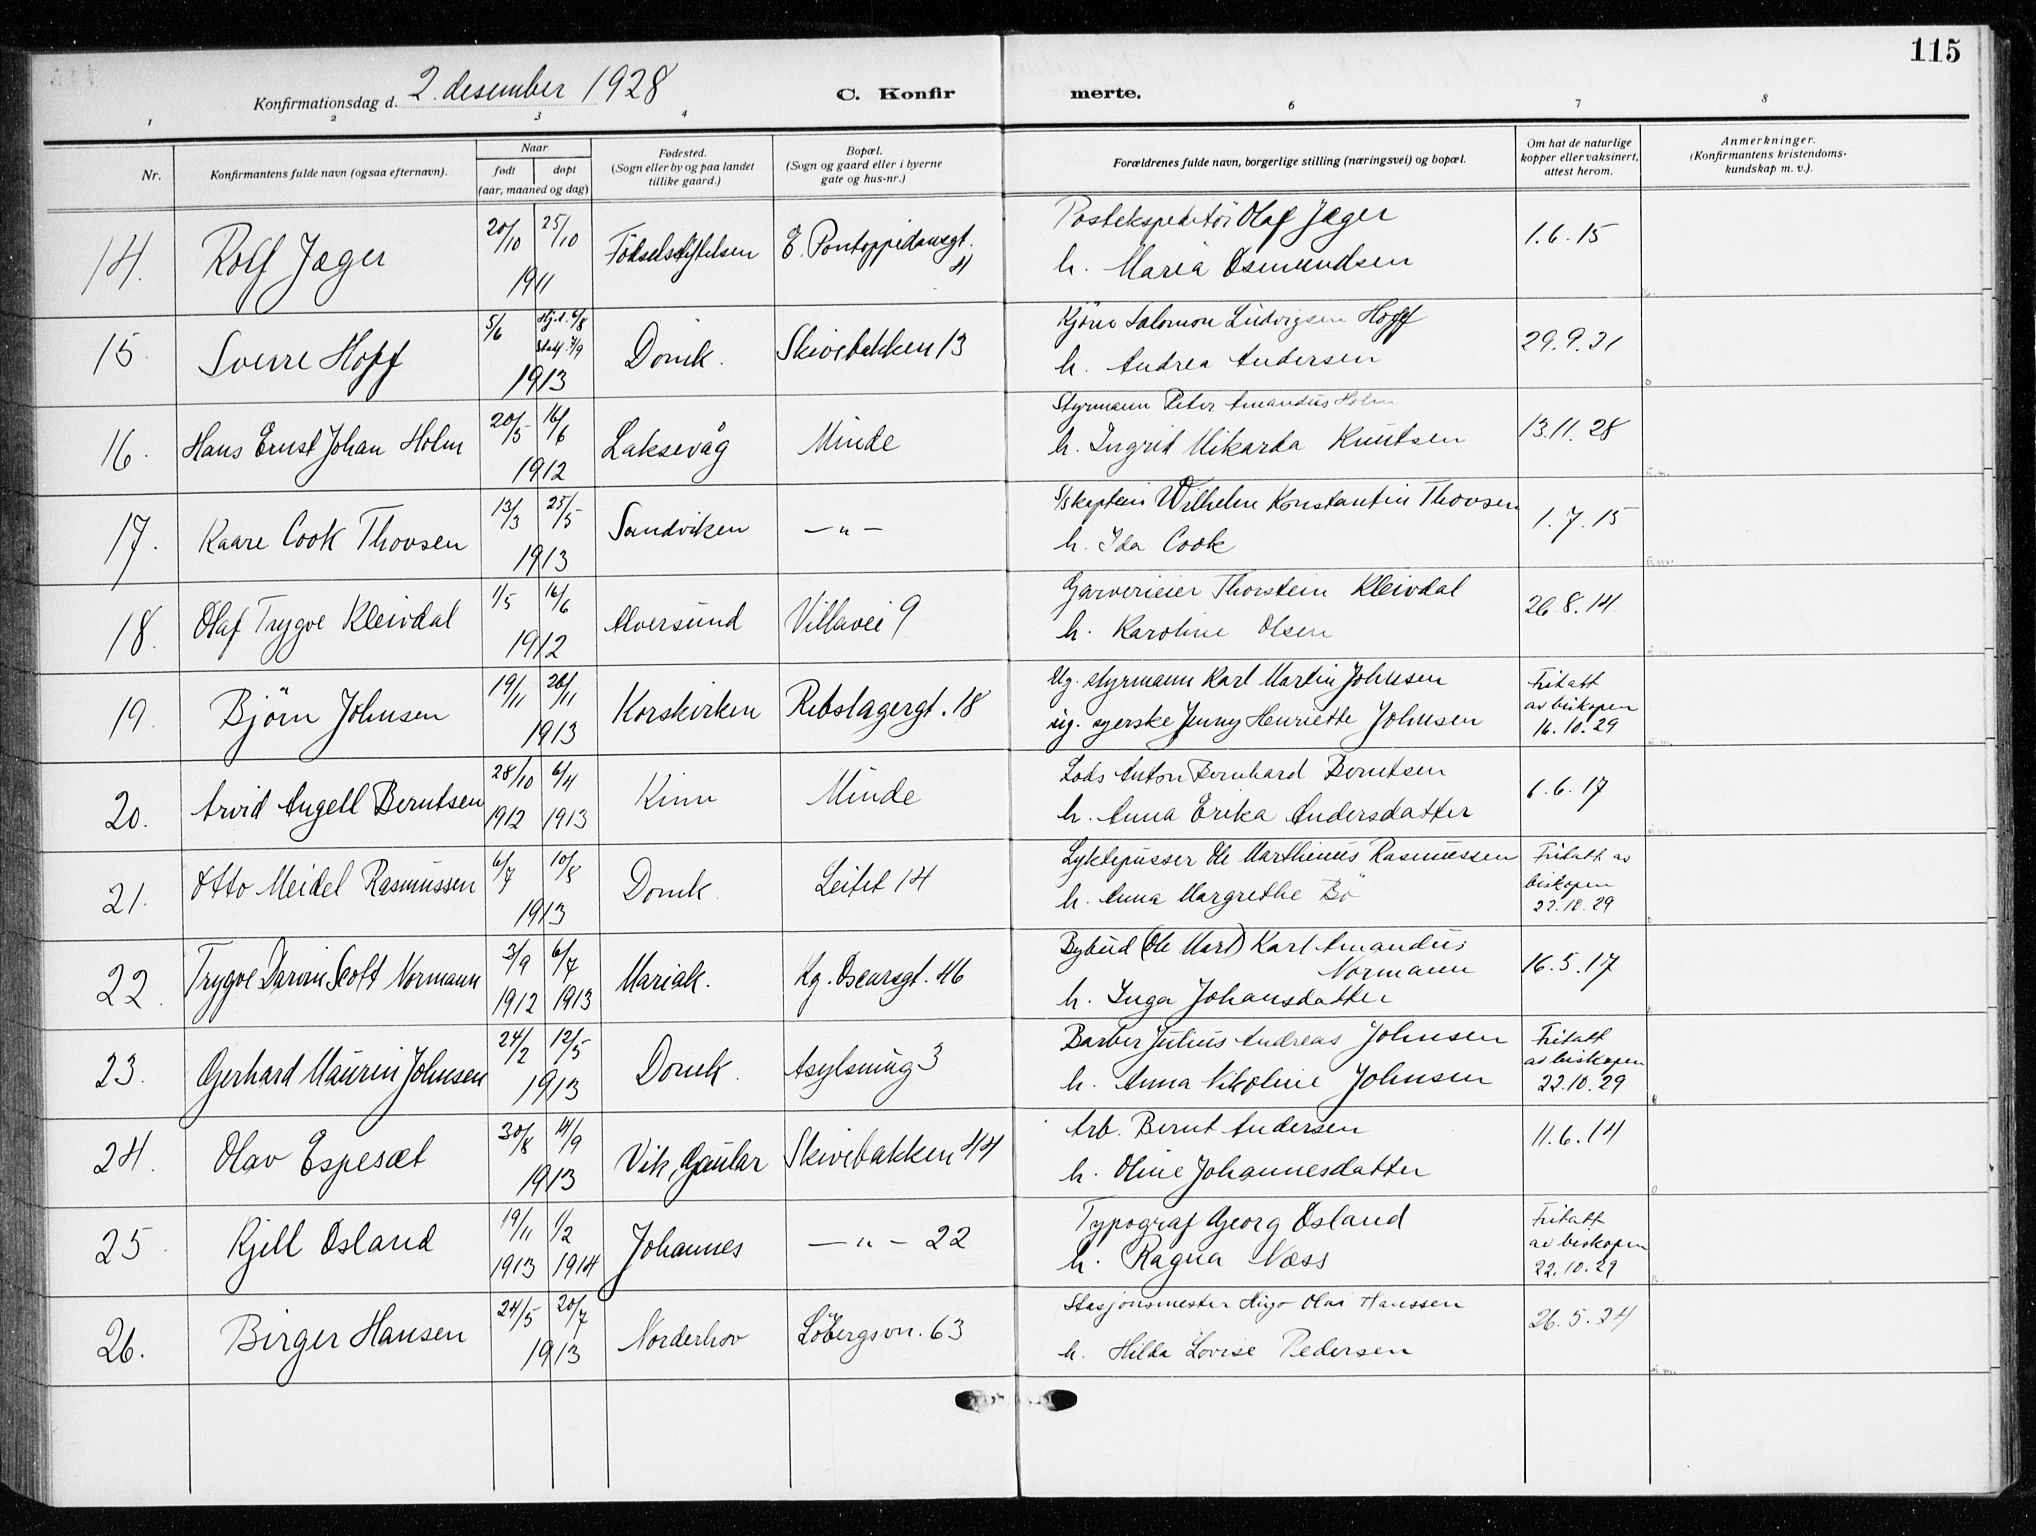 115
Konfirmationsdag d. 2. desember 1928 C. Konfir merte.
1 2 3 4 6 7 8
Nr. Konfirmantens fulde navn (ogsaa efternavn). Naar født døpt (aar, maaned og dag) Fødested. (Sogn eller by og paa landet tillike gaard.) Bopæl. (Sogn og gaard eller i byerne gate og hus-nr.) Forældrenes fulde navn, borgerlige stilling (næringsvei) og bopæl. Om hat de naturlige kopper eller vaksinert, attest herom. Anmerkninger. (Konfirmantens kristendoms-kundskap m. v.).
14. Rolf Jæger 20/10 25/10 1911 Födselsstiftelsen E. Pontoppidansgt. 4 Postekspeditör Olaf Jæger 1.6.15
h. Maria Osmundsen
15. Sverre Hopf 5/6 Hj.d. 6/8 Stadf. 7/9 1913 Domk. Skivebakken 13 Kjörer Salomon Ludvigsen Hopf 29.9.21
h. Andrea Andersen
16. Hans Ernst Johan Holm 20/5 16/6 1912 Laksevåg Minde Styrmann Peter Amandus Holm 13.11.28
h. Ingrid Mikarda Knutsen
17. Kaare Cook Thovsen 13/3 25/5 1913 Sandviken — " — S/skaptein Wilhelm Konstantin Thovsen 1.7.15
h. Ida Cook
18. Olaf Trygve Kleivdal 1/5 16/6 1912 Alversund Villavei 9 Garverieier Thorstein Kleivdal 26.8.14.
h. Karoline Olsen
19. Björn Johnsen 19/11 26/11 1913 Korskirken Rebslagergt. 18 Ug. styrmann Karl Martin Johnsen Fritatt
ug. syerske Jenny Henriette Johnsen av biskopen
16.10.29
20. Arvid Angell Berntsen 28/10 1912 6/4 1913 Kinn Minde Lods Anton Bernhard Berntsen 6.6.17
h. Anna Erika Andersdatter
21. Otto Meidel Rasmussen 6/7 10/8 1913 Domk. Leitet 14 Lyktepusser Ole Marthinus Rasmussen Fritatt av
h. Anna Margrethe Bö biskopen
22.10.29
22. Trygve Darwin Scott Normann 3/9 1912 6/7 1913 Mariak. Kg. Oscarsgt. 46 Bybud (Ole Mart) Karl Amandus
Normann 16.5.17
h. Inga Johansdatter
23. Gerhard Maurin Johnsen 24/2 12/5 1913 Domk. Asylsmug 3 Barber Julius Andreas Johnsen Fritatt
h. Anna Nikoline Johnsen av biskopen
22.10.29
24. Olav Espesæt 30/8 14/9 1913 Vik, Gaular Skivebakken 44 Arb. Bernt Andersen 11.6.14
h. Oline Johannesdatter
25. Kjell Osland 19/11 1913 1/2 1914 Johannes — " — 22 Typograf Georg Osland Fritatt
h. Ragna Næss av biskopen
22.10.29
26. Birger Hansen 24/5 20/7 1913 Norderhov Löbergsvn. 63 Stasjonsmester Hugo Olai Hanssen 26.5.24
h. Hilda Lovise Pedersen